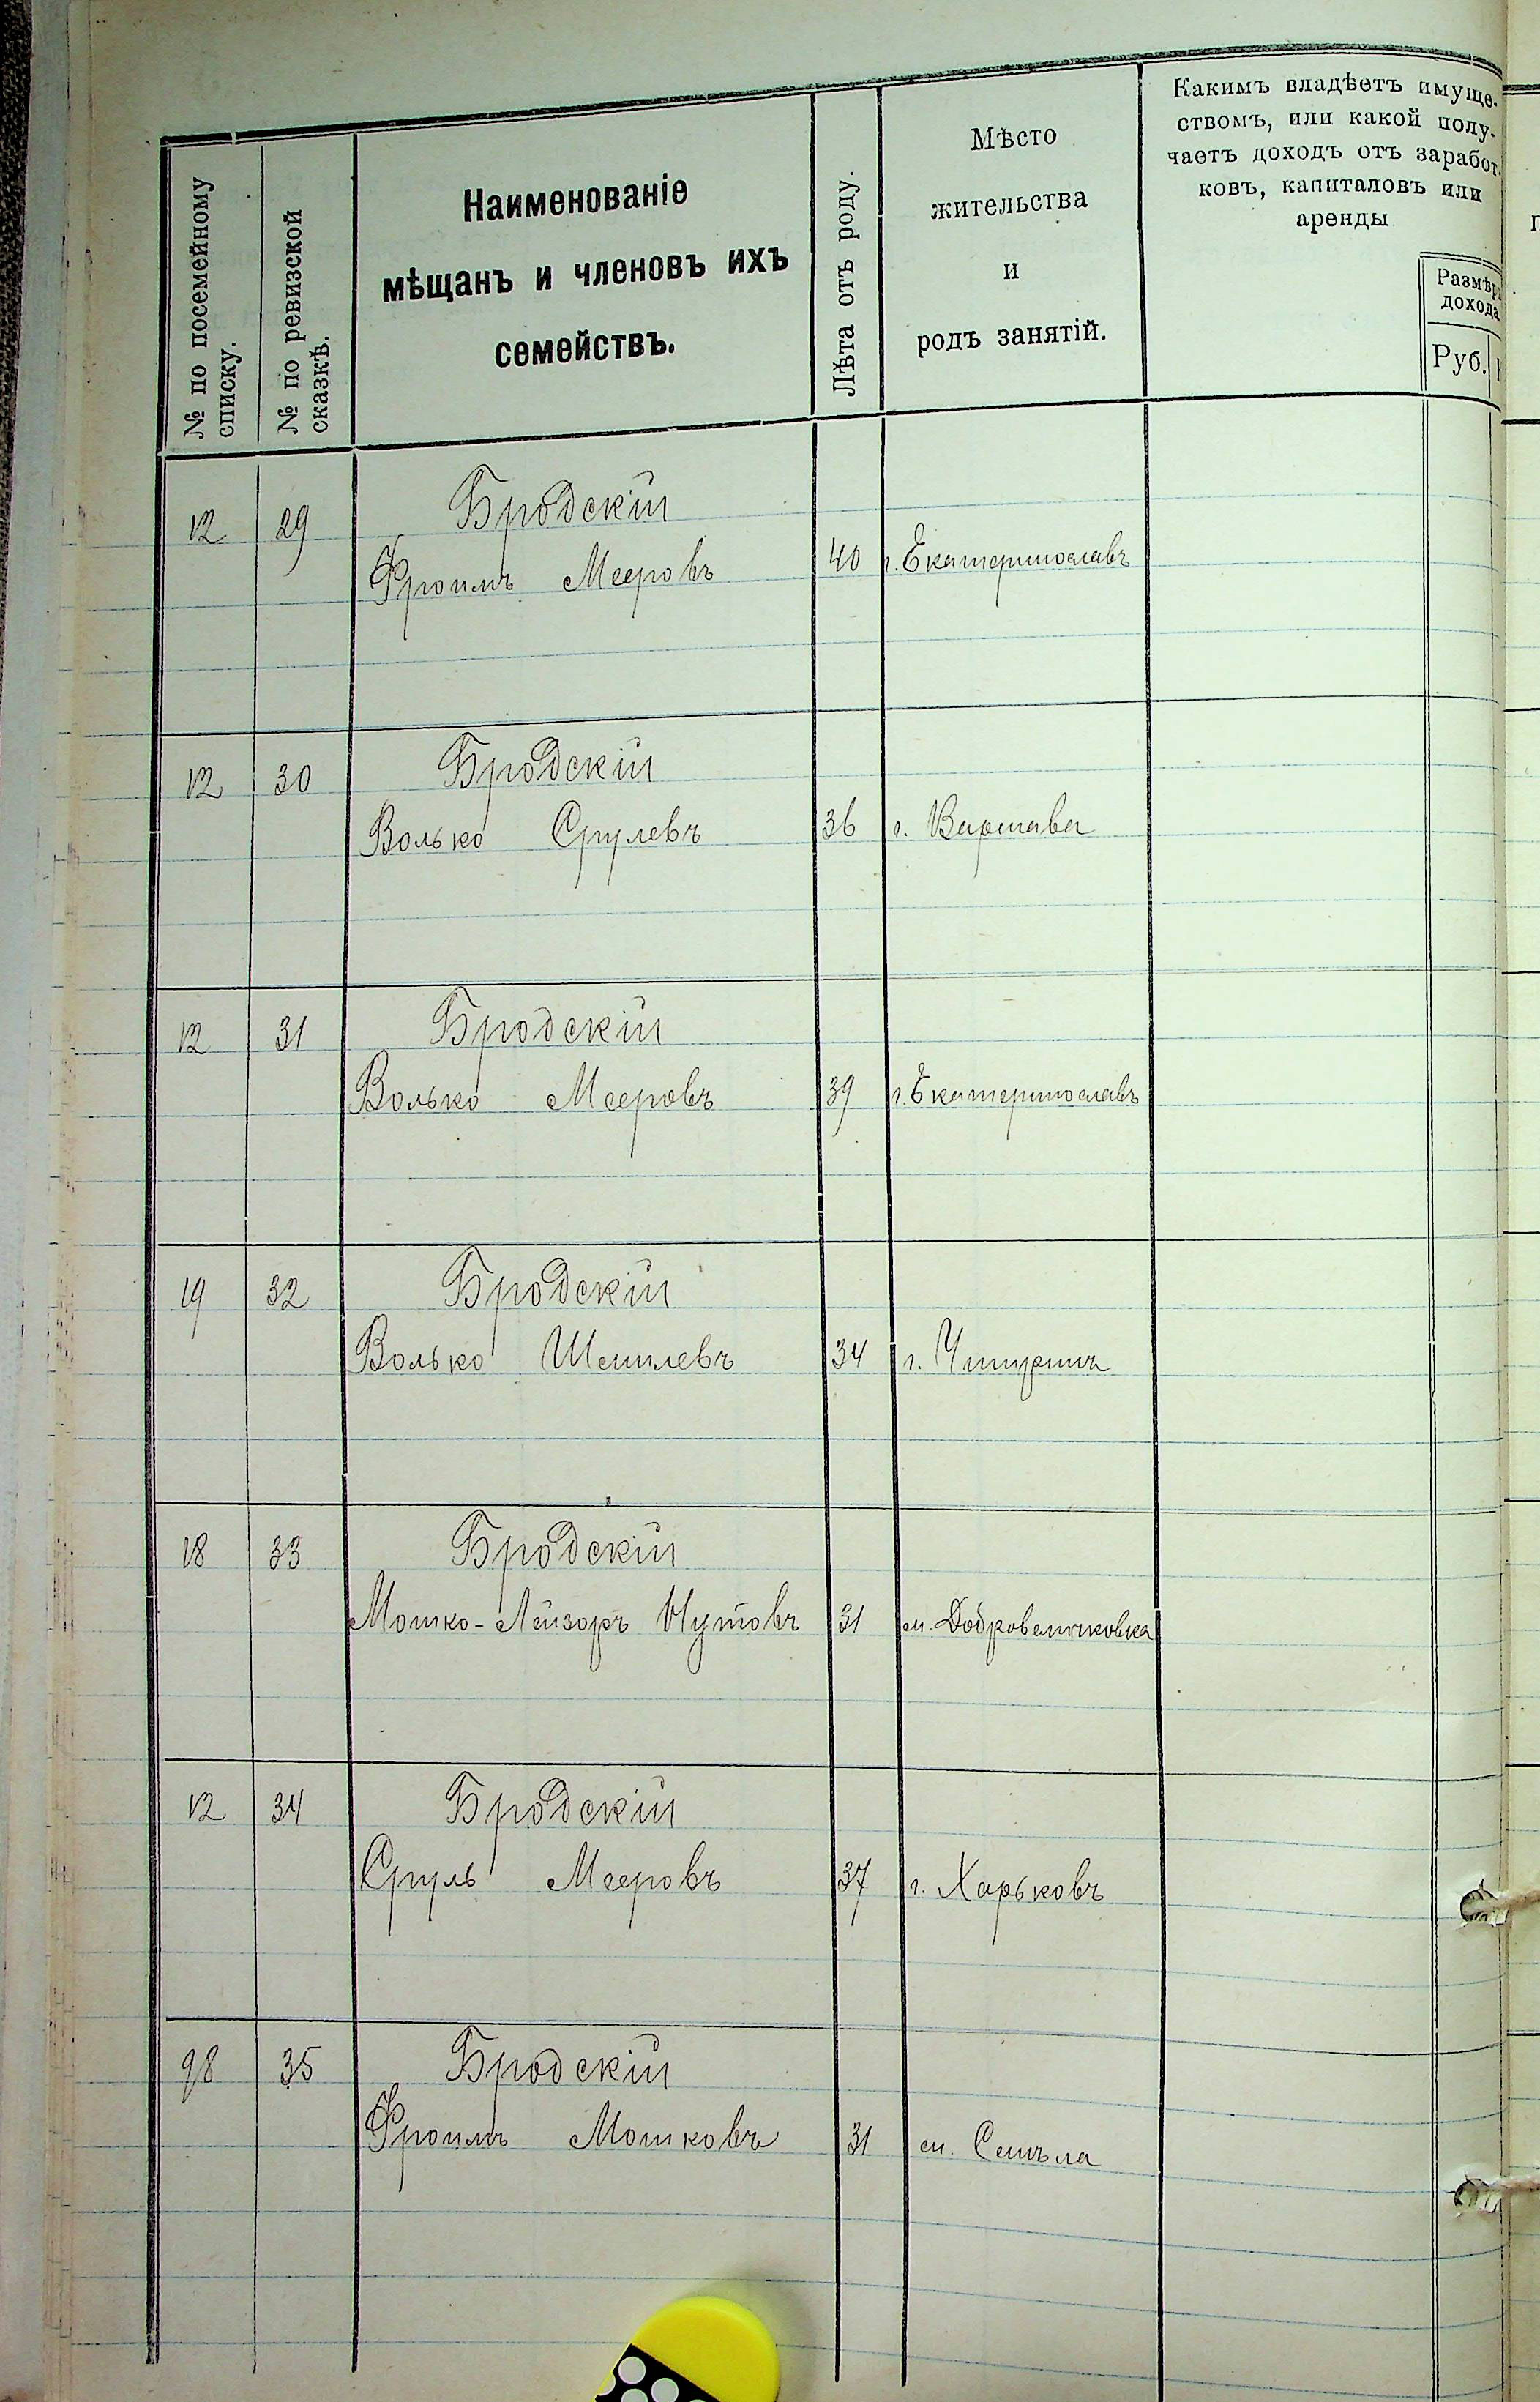 № по посемейному
списку.
№ по ревизской
сказкѣ.
Наименованіе
мѣщанъ и членовъ ихъ
семействъ.
Лѣта отъ роду.
Мѣсто
жительства
и
родъ занятій.
Какимъ владѣетъ имуще-
ствомъ, или какой полу-
чаетъ доходъ отъ заработ-
ковъ, капиталовъ или
аренды
Размѣръ
дохода
Руб.
12 29 Бродскій
Фроимъ Мееровъ 40 г. Екатеринославъ
12 30 Бродскій
Волько Срулевъ 36 г. Варшава
12 31 Бродскій
Волько Мееровъ 39 г. Екатеринославъ
19 32 Бродскій
Волько Шмилевъ 34 г. Чигиринъ
18 33 Бродскій
Мошко-Лейзоръ Нутовъ 31 м. Добровеличковка
12 34 Бродскій
Сруль Мееровъ 37 г. Харьковъ
98 35 Бродскій
Фроимъ Мошковъ 31 м. Смѣла